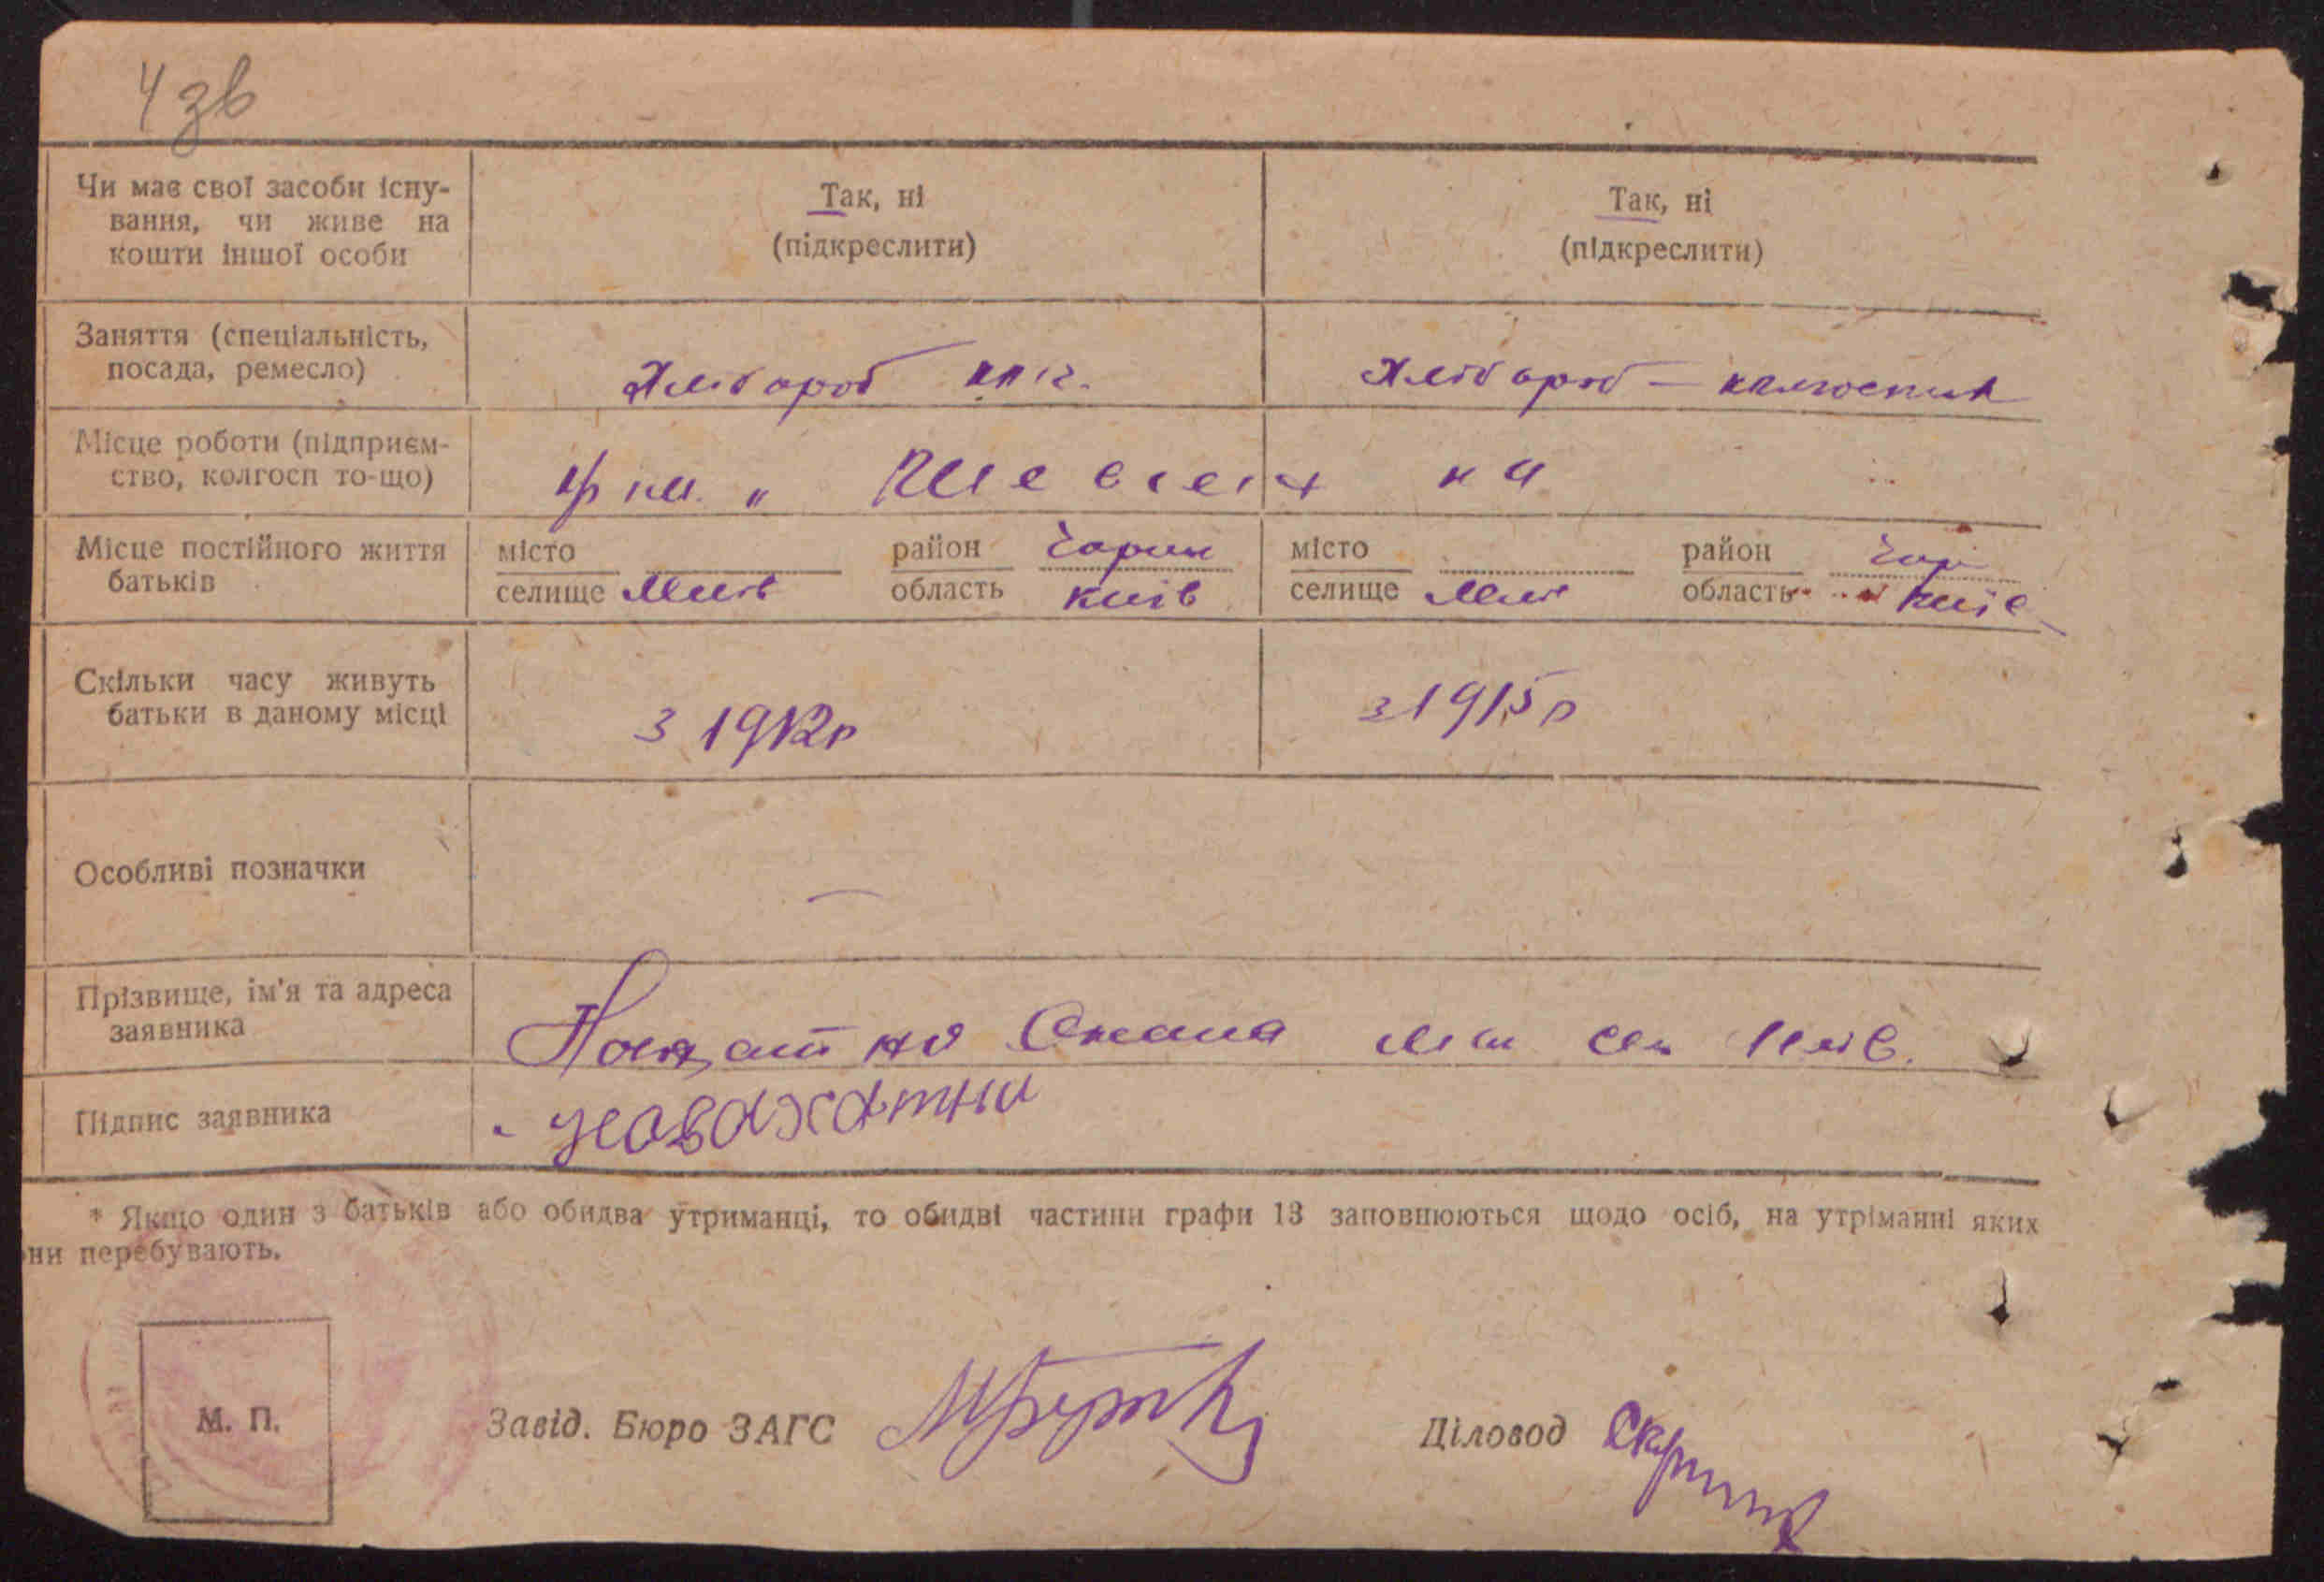 4 зв
Чи має свої засоби існу-
вання, чи живе на
кошти іншої особи
Так, ні
(підкреслити)
Так, ні
(підкреслити)
Заняття (спеціальність,
посада, ремесло)
Хлібороб
Хлібороб – колгоспник
Місце роботи (підприєм-
ство, колгосп то-що)
Шевченка
Місце постійного життя
батьків
місто
селище Мліїв
район
область Київ
місто
селище Мліїв
район
область Київ
Скільки часу живуть
батьки в даному місці
з 1912р
з 1915р
Особливі позначки
—
Прізвище, ім'я та адреса
заявника
Оксана
Підпис заявника
* Якщо один з батьків або обидва утриманці, то обидві частини графи 13 заповнюються щодо осіб, на утріманні яких
ни перебувають.
М. П.
Завід. Бюро ЗАГС
Діловод